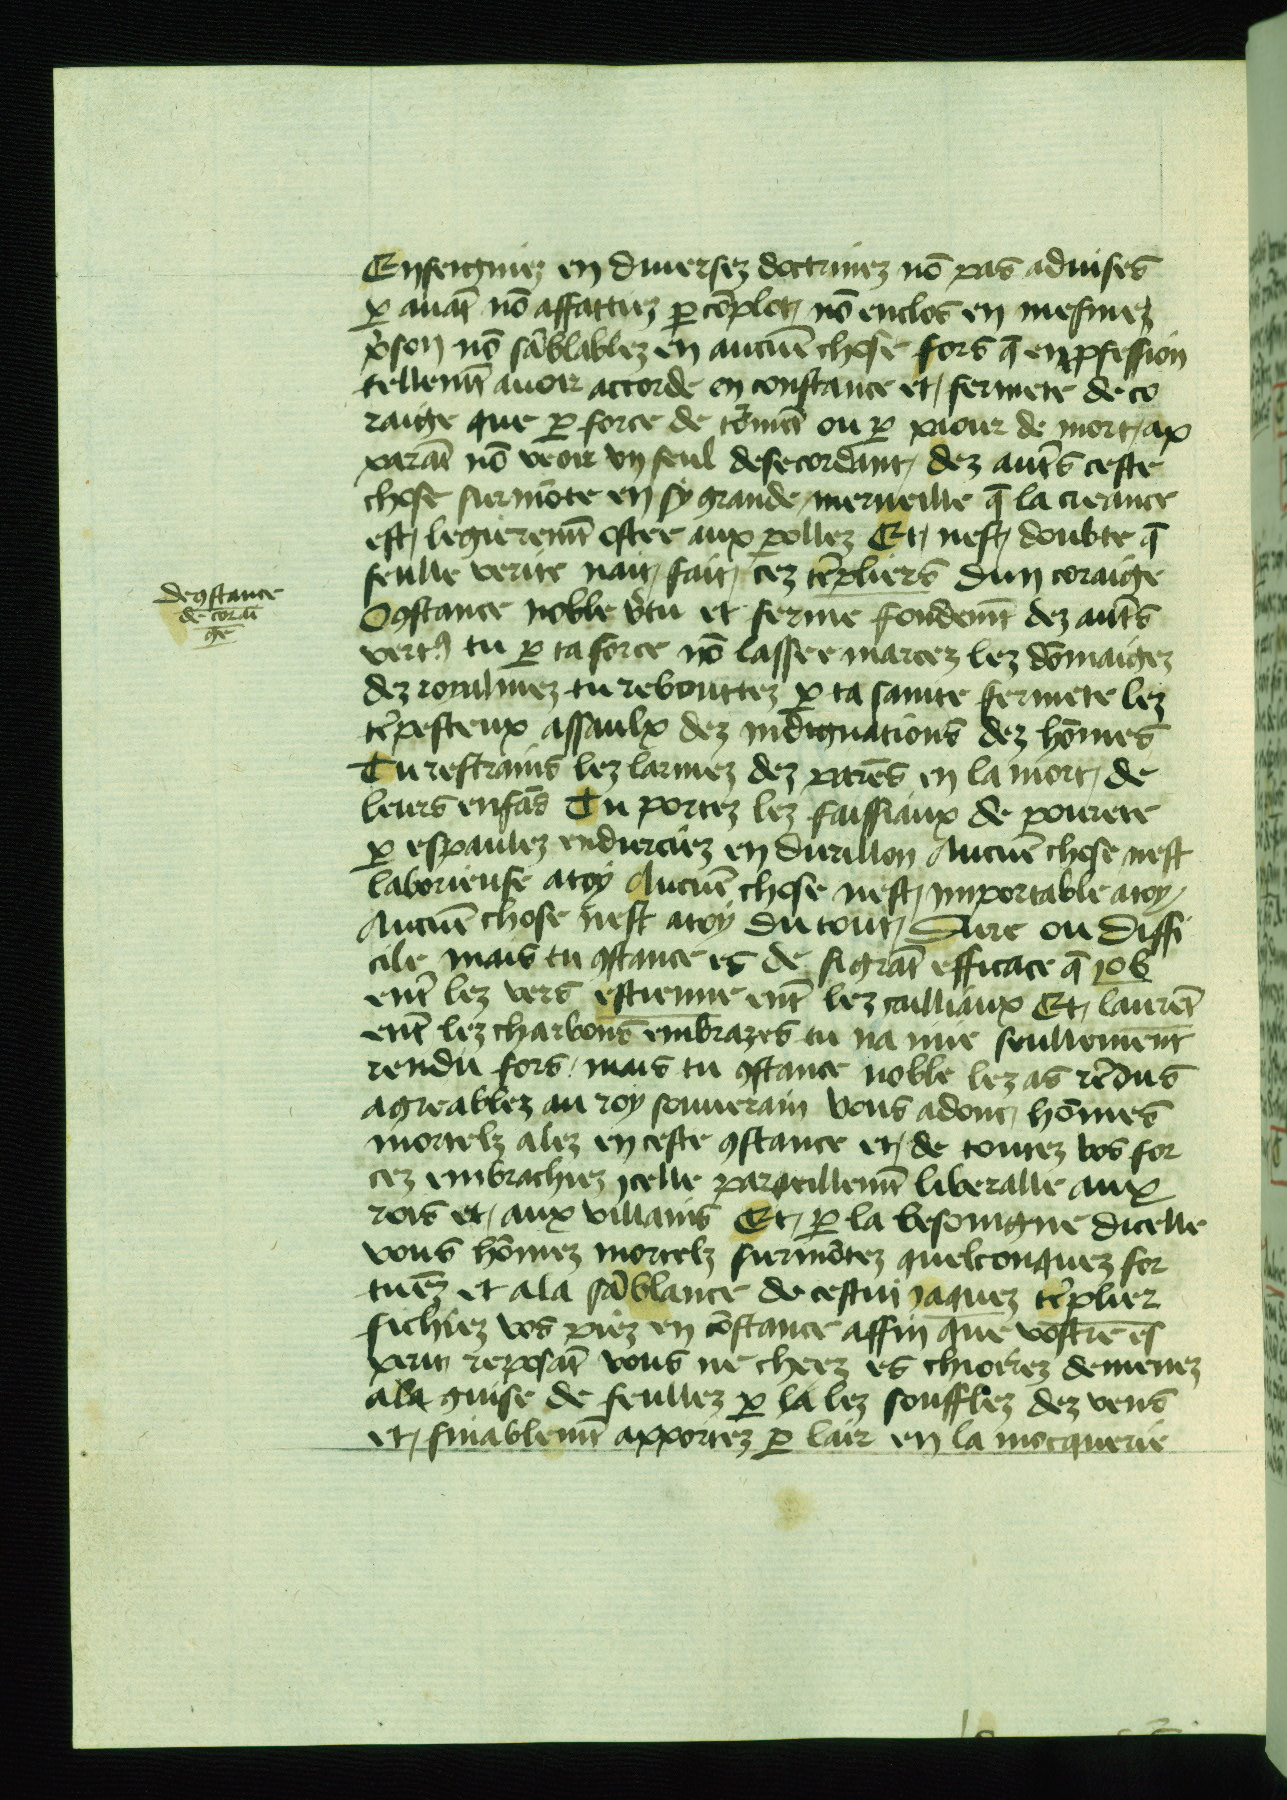 Enseigniez en diversez doctrinez nō pas advises
ꝑ avāt nō affattiez ꝑ cōplot nō enclos en mesmez
p̄son nō sāblablez en aucūe chose fors q̄ en ꝓfession
tellemt̄ avoir accorde en constance et fermete de co
raige que ꝑ force de tōrmēt ou ꝑ paour de mort ap
parāt nō veoir vn seul desecordant dez aut̄s ceste
chose surmōte en sy grande merveille q̄ la creance
est legieremt̄ ostee aux pollez Et nest doubte q̄
seulle verite nait fait cez tēpliers dun coraige
de ꝯstance
de corai
ge
O ꝯstance noble v̄tu et ferme fondemt̄ dez aut̄s
vertꝰ tu ꝑ ta force nō lassee marcez lez dōmaigez
dez roiaulmez tu reboutez ꝑ ta sainte fermete lez
tēpesteux assaulx dez indignations dez hōmes
Tu restrains lez larmez dez parēs en la mort de
leurs enfās Tu portez lez faissiaux de povrete
ꝑ espaulez endurciez en durillon Aucūe chose nest
laborieuse a toy Aucūe chose nest importable a toy
Aucūe chose nest a toy du tout Dure ou diffi
cile mais tu ꝯstance es de si grāt efficace q̄ iob
ent̄ lez vers estienne ent̄ lez cailliaux Et laurēt
ent̄ lez charbons embrazes tu na mie seullement
rendu fors mais tu ꝯstance noble lez as rēdus
agreablez au roy souverain Vous adonc hōmes
mortelz alez en ceste ꝯstance et de toutez vos for
cez embrachiez ycelle pareillemt̄ liberalle aux
rois et aux villains Et ꝑ la besoingne dicelle
vous hōmez mortelz surmōtez quelconquez for
tūez et a la sāblance de cestui iaquez tēplier
fichiez vos piez en cōstance affin que vostre es
perit reposāt vous ne cheez es chiorez demenez
a la guise de feullez ꝑ la lez soufflez dez vens
et finablemt̄ apportez ꝑ lair en la mocquerie